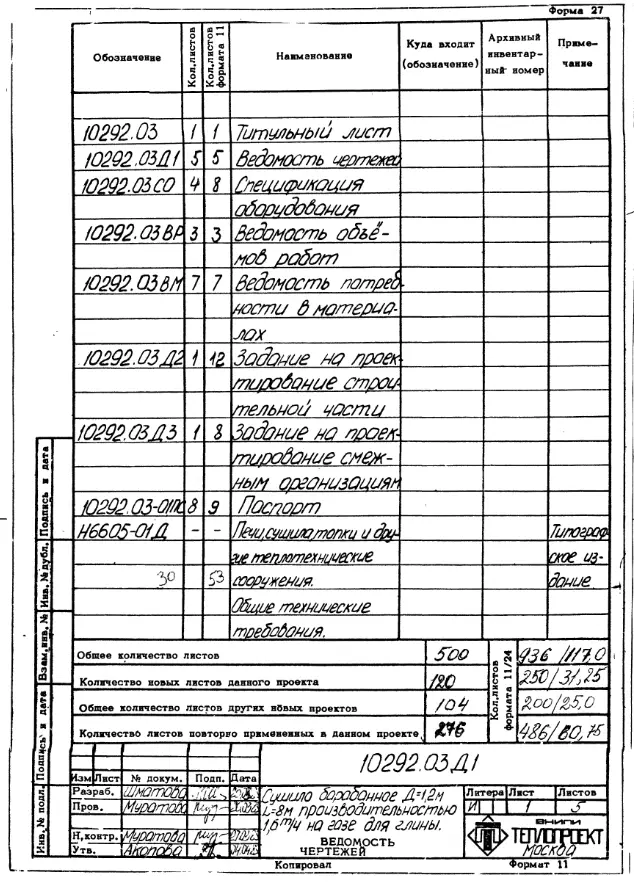 Форма 27
Обозначение Кол.листов Кол.листов формата 11 Наименование Куда входит (обозначение) Архивный инвентарный номер Примечание
10292.03 1 1 Титульный лист
10292.03Д1 5 5 Ведомость чертежей
10292.03СО 4 8 Спецификация
оборудования
10292.03ВР 3 3 Ведомость объё-
мов работ
10292.03ВМ 7 7 Ведомость потреб
ности в материа-
лах
10292.03Д2 1 12 Задание на проек
тирование строи
тельной части
10292.03Д3 1 8 Задание на проек-
тирование смеж-
ным организациям
10292.03-01ПС 8 9 Паспорт
Н6605-01Д - - Печи,сушила,топки и дру- Типограф
гие теплотехнические ское из-
30 53 сооружения. дание
Общие технические
требования.
Общее количество листов 500 936/117,0
Количество новых листов данного проекта 120 250/31,25
Общее количество листов других новых проектов 104 200/25,0
Количество листов повторно примененных в данном проекте 276 486/60,75
Кол.листов формата 11/24
10292.03Д1
Изм Лист № докум. Подп. Дата
Разраб. Шматова
Пров. Муратова
Н,контр. Муратова
Утв. Акопова
Сушило барабанное Д=1,2м
L=8м производительностью
1,6 т/ч на газе для глины.
ВЕДОМОСТЬ
ЧЕРТЕЖЕЙ
Литера Лист Листов
И 1 5
ВНИПИ
ТЕПЛОПРОЕКТ
Москва
Копировал Формат 11
Инв.№ подл. Подпись и дата Взам.инв.№ Инв.№ дубл. Подпись и дата